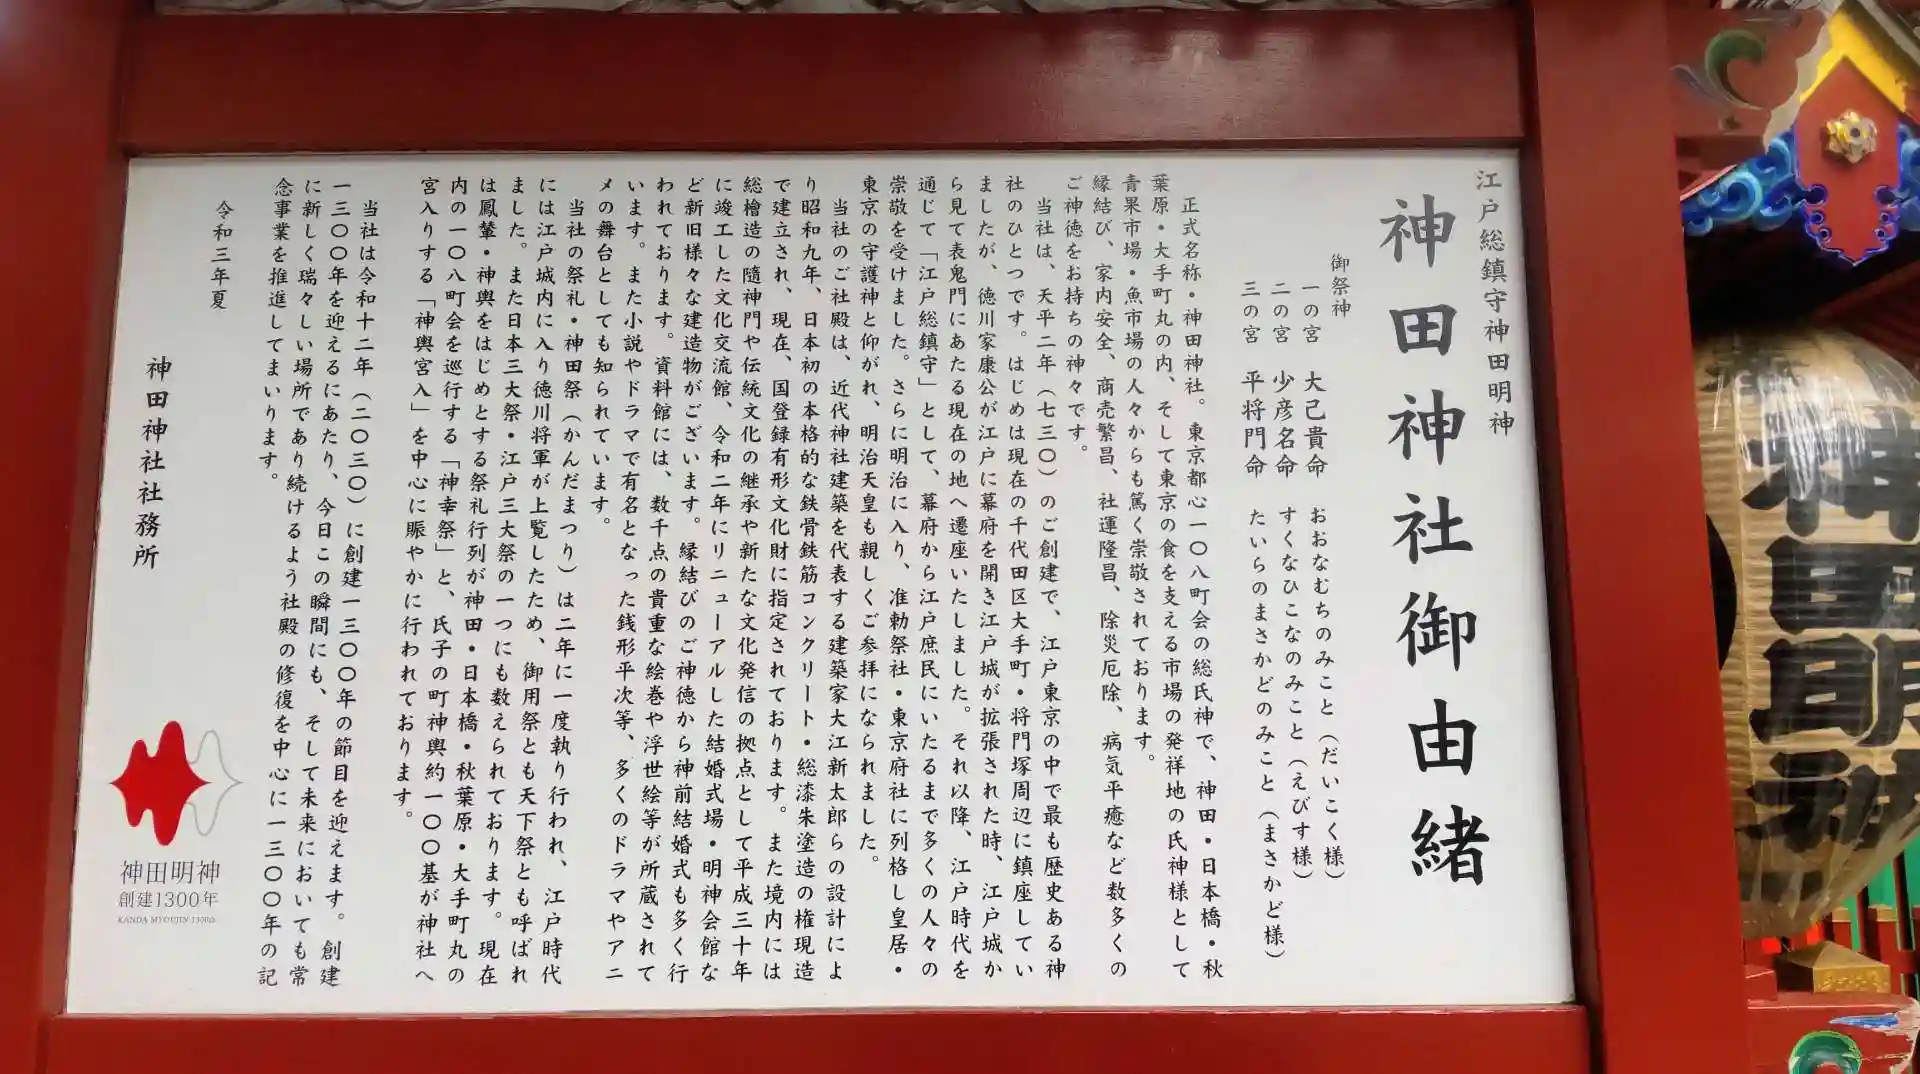 江戸総鎮守神田明神
神田神社御由緒
御祭神
一の宮 大己貴命 おおなむちのみこと（だいこく様）
二の宮 少彦名命 すくなひこなのみこと（えびす様）
三の宮 平将門命 たいらのまさかどのみこと（まさかど様）
正式名称・神田神社。東京都心一〇八町会の総氏神で、神田・日本橋・秋
葉原・大手町丸の内、そして東京の食を支える市場の発祥地の氏神様として
青果市場・魚市場の人々からも篤く崇敬されております。
縁結び、家内安全、商売繁昌、社運隆昌、除災厄除、病気平癒など数多くの
ご神徳をお持ちの神々です。
当社は、天平二年（七三〇）のご創建で、江戸東京の中で最も歴史ある神
社のひとつです。はじめは現在の千代田区大手町・将門塚周辺に鎮座してい
ましたが、徳川家康公が江戸に幕府を開き江戸城が拡張された時、江戸城か
ら見て表鬼門にあたる現在の地へ遷座いたしました。それ以降、江戸時代を
通じて「江戸総鎮守」として、幕府から江戸庶民にいたるまで多くの人々の
崇敬を受けました。さらに明治に入り、准勅祭社・東京府社に列格し皇居・
東京の守護神と仰がれ、明治天皇も親しくご参拝になられました。
当社のご社殿は、近代神社建築を代表する建築家大江新太郎らの設計によ
り昭和九年、日本初の本格的な鉄骨鉄筋コンクリート・総漆朱塗造の権現造
で建立され、現在、国登録有形文化財に指定されております。また境内には
総檜造の隨神門や伝統文化の継承や新たな文化発信の拠点として平成三十年
に竣工した文化交流館、令和二年にリニューアルした結婚式場・明神会館な
ど新旧様々な建造物がございます。縁結びのご神徳から神前結婚式も多く行
われております。資料館には、数千点の貴重な絵巻や浮世絵等が所蔵されて
います。また小説やドラマで有名となった銭形平次等、多くのドラマやアニ
メの舞台としても知られています。
当社の祭礼・神田祭（かんだまつり）は二年に一度執り行われ、江戸時代
には江戸城内に入り徳川将軍が上覧したため、御用祭とも天下祭とも呼ばれ
ました。また日本三大祭・江戸三大祭の一つにも数えられております。現在
は鳳輦・神輿をはじめとする祭礼行列が神田・日本橋・秋葉原・大手町丸の
内の一〇八町会を巡行する「神幸祭」と、氏子の町神輿約一〇〇基が神社へ
宮入りする「神輿宮入」を中心に賑やかに行われております。
当社は令和十二年（二〇三〇）に創建一三〇〇年の節目を迎えます。創建
一三〇〇年を迎えるにあたり、今日この瞬間にも、そして未来においても常
に新しく瑞々しい場所であり続けるよう社殿の修復を中心に一三〇〇年の記
念事業を推進してまいります。
令和三年夏
神田神社社務所
神田明神
創建1300年
KANDA MYOUJIN 1300th
神田明神